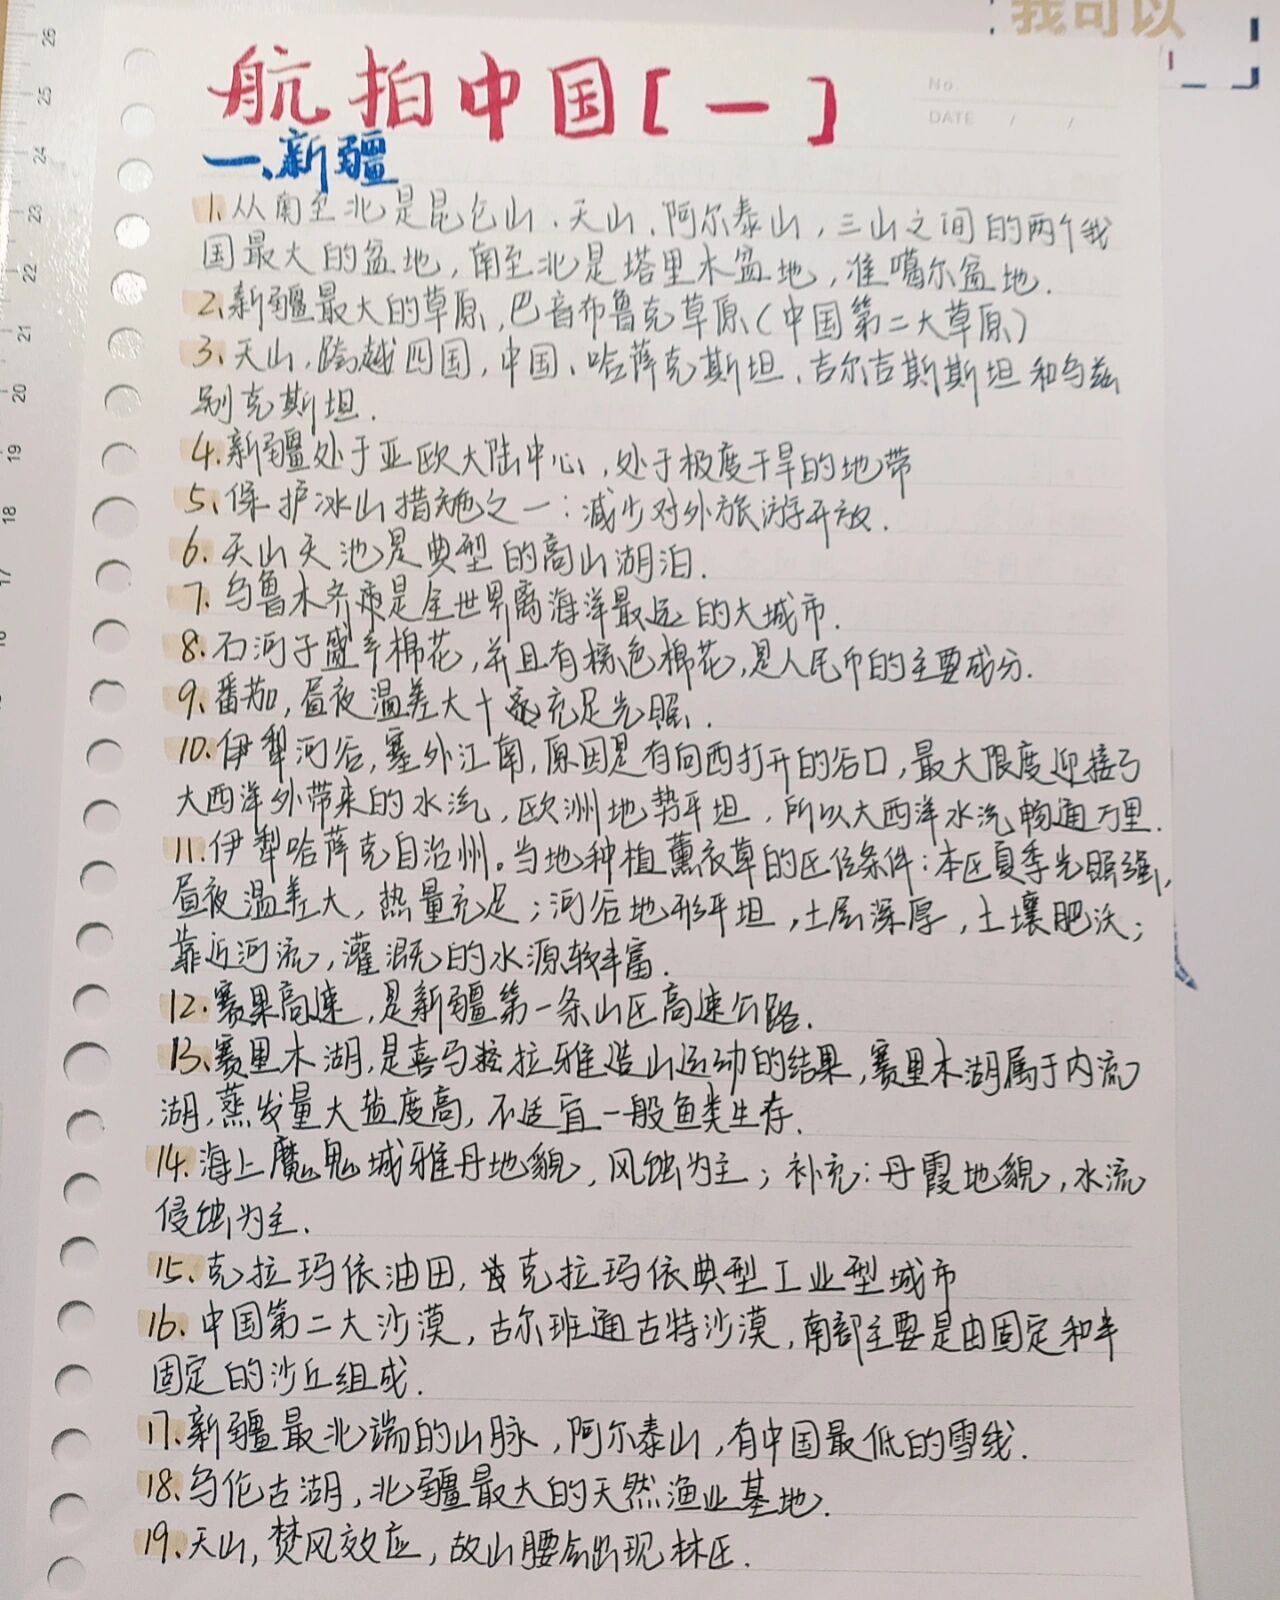 我可以
航拍中国[一]
No.
DATE / /
一、新疆
1.从南至北是昆仑山、天山、阿尔泰山，三山之间的两个我
国最大的盆地，南至北是塔里木盆地，准噶尔盆地.
2.新疆最大的草原，巴音布鲁克草原(中国第二大草原)
3.天山，跨越四国，中国、哈萨克斯坦、吉尔吉斯斯坦和乌兹
别克斯坦.
4.新疆处于亚欧大陆中心，处于极度干旱的地带
5.保护冰山措施之一：减少对外旅游开放.
6.天山天池是典型的高山湖泊.
7.乌鲁木齐是全世界离海洋最远的大城市.
8.石河子盛产棉花，并且有棕色棉花，是人民币的主要成分.
9.番茄，昼夜温差大+充足光照.
10.伊犁河谷，塞外江南，原因是有向西打开的谷口，最大限度迎接了
大西洋外带来的水汽，欧洲地势平坦，所以大西洋水汽畅通万里.
11.伊犁哈萨克自治州。当地种植薰衣草的区位条件：本区夏季光照强，
昼夜温差大，热量充足；河谷地形平坦，土层深厚，土壤肥沃；
靠近河流，灌溉的水源较丰富.
12.赛果高速，是新疆第一条山区高速公路.
13.赛里木湖，是喜马拉雅造山运动的结果，赛里木湖属于内流
湖，蒸发量大盐度高，不适宜一般鱼类生存.
14.海上魔鬼城雅丹地貌，风蚀为主；补充：丹霞地貌，水流
侵蚀为主.
15.克拉玛依油田，克拉玛依典型工业型城市
16.中国第二大沙漠，古尔班通古特沙漠，南部主要是由固定和半
固定的沙丘组成.
17.新疆最北端的山脉，阿尔泰山，有中国最低的雪线.
18.乌伦古湖，北疆最大的天然渔业基地.
19.天山，焚风效应，故山腰会出现林区.
26
25
24
23
22
21
20
19
18
17
16